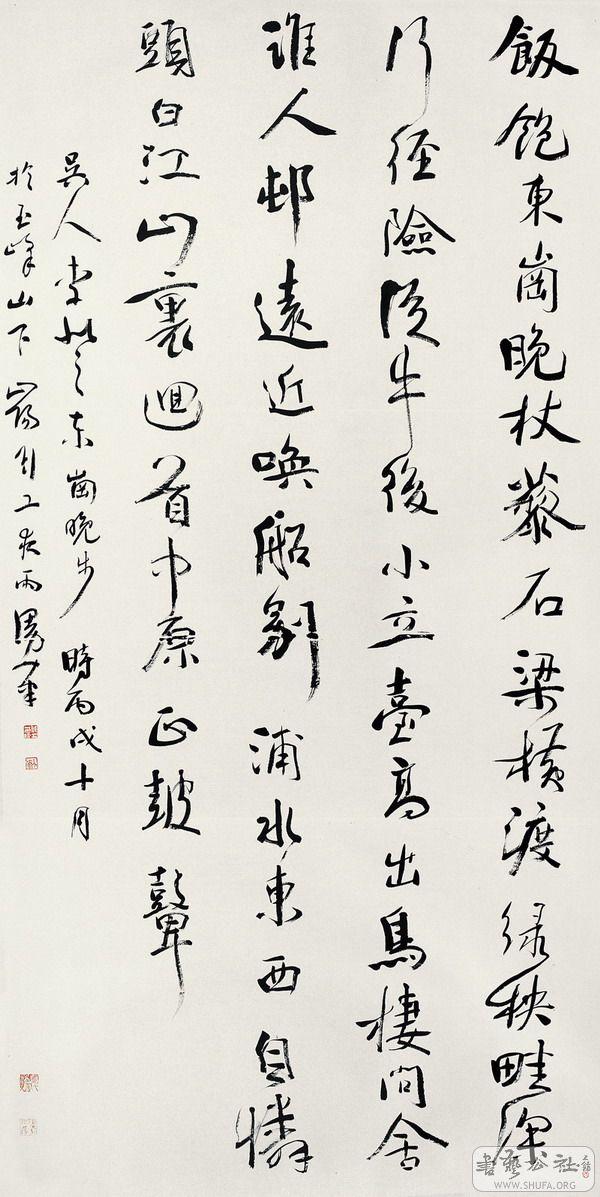 飯飽東崗晚杖藜石梁橫渡綠秧畦深
行徑險從牛後小立臺高出鳥棲問舍
誰人邨遠近喚船別浦水東西自憐
頭白江山裏迴首中原正鼓鼙
吳人李似之東崗晚步 時丙戌十月
於玉峰山下 夜雨
書藝公社
WWW.SHUFA.ORG